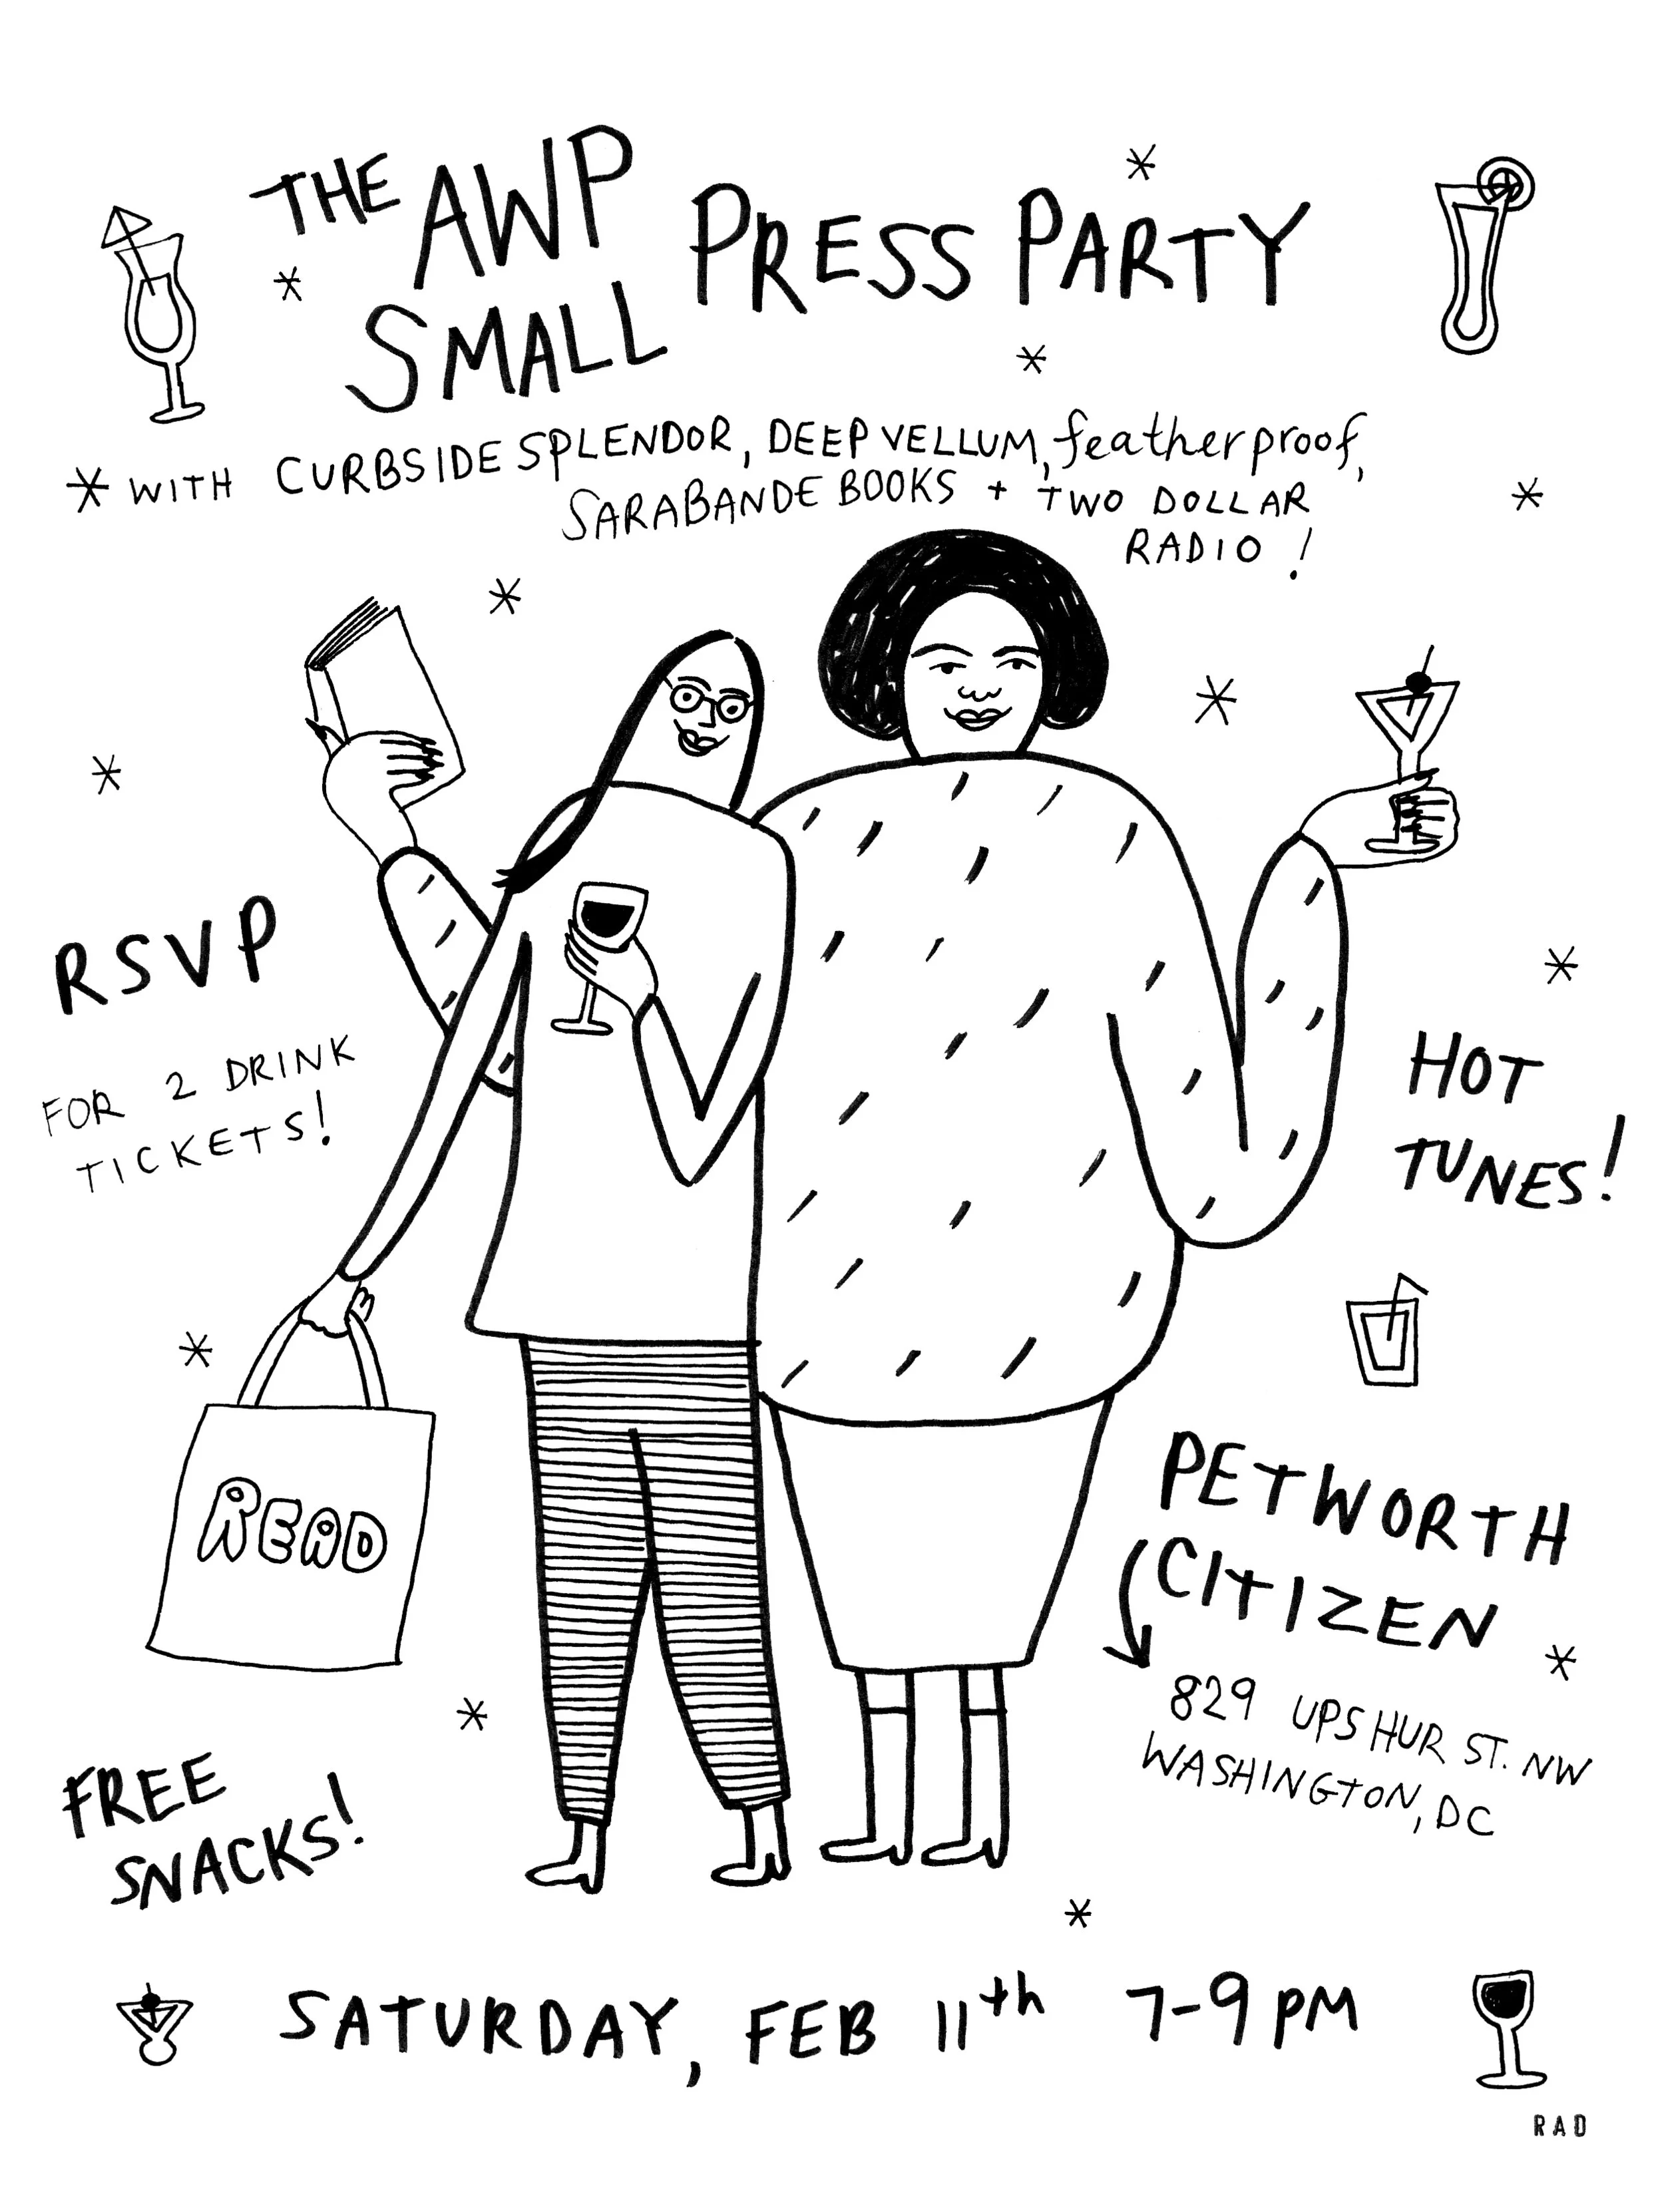 THE AWP
SMALL PRESS PARTY
WITH CURBSIDE SPLENDOR, DEEP VELLUM, featherproof,
SARABANDE BOOKS + TWO DOLLAR
RADIO!
RSVP
FOR 2 DRINK
TICKETS!
HOT
TUNES!
READ
PETWORTH
CITIZEN
829 UPSHUR ST. NW
WASHINGTON, DC
FREE
SNACKS!
SATURDAY, FEB 11th 7-9 PM
RAD